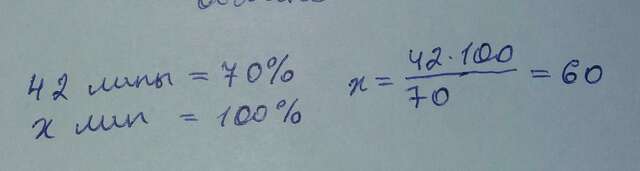 42 липы = 70%
x лип = 100%
x = 42·100/70 = 60